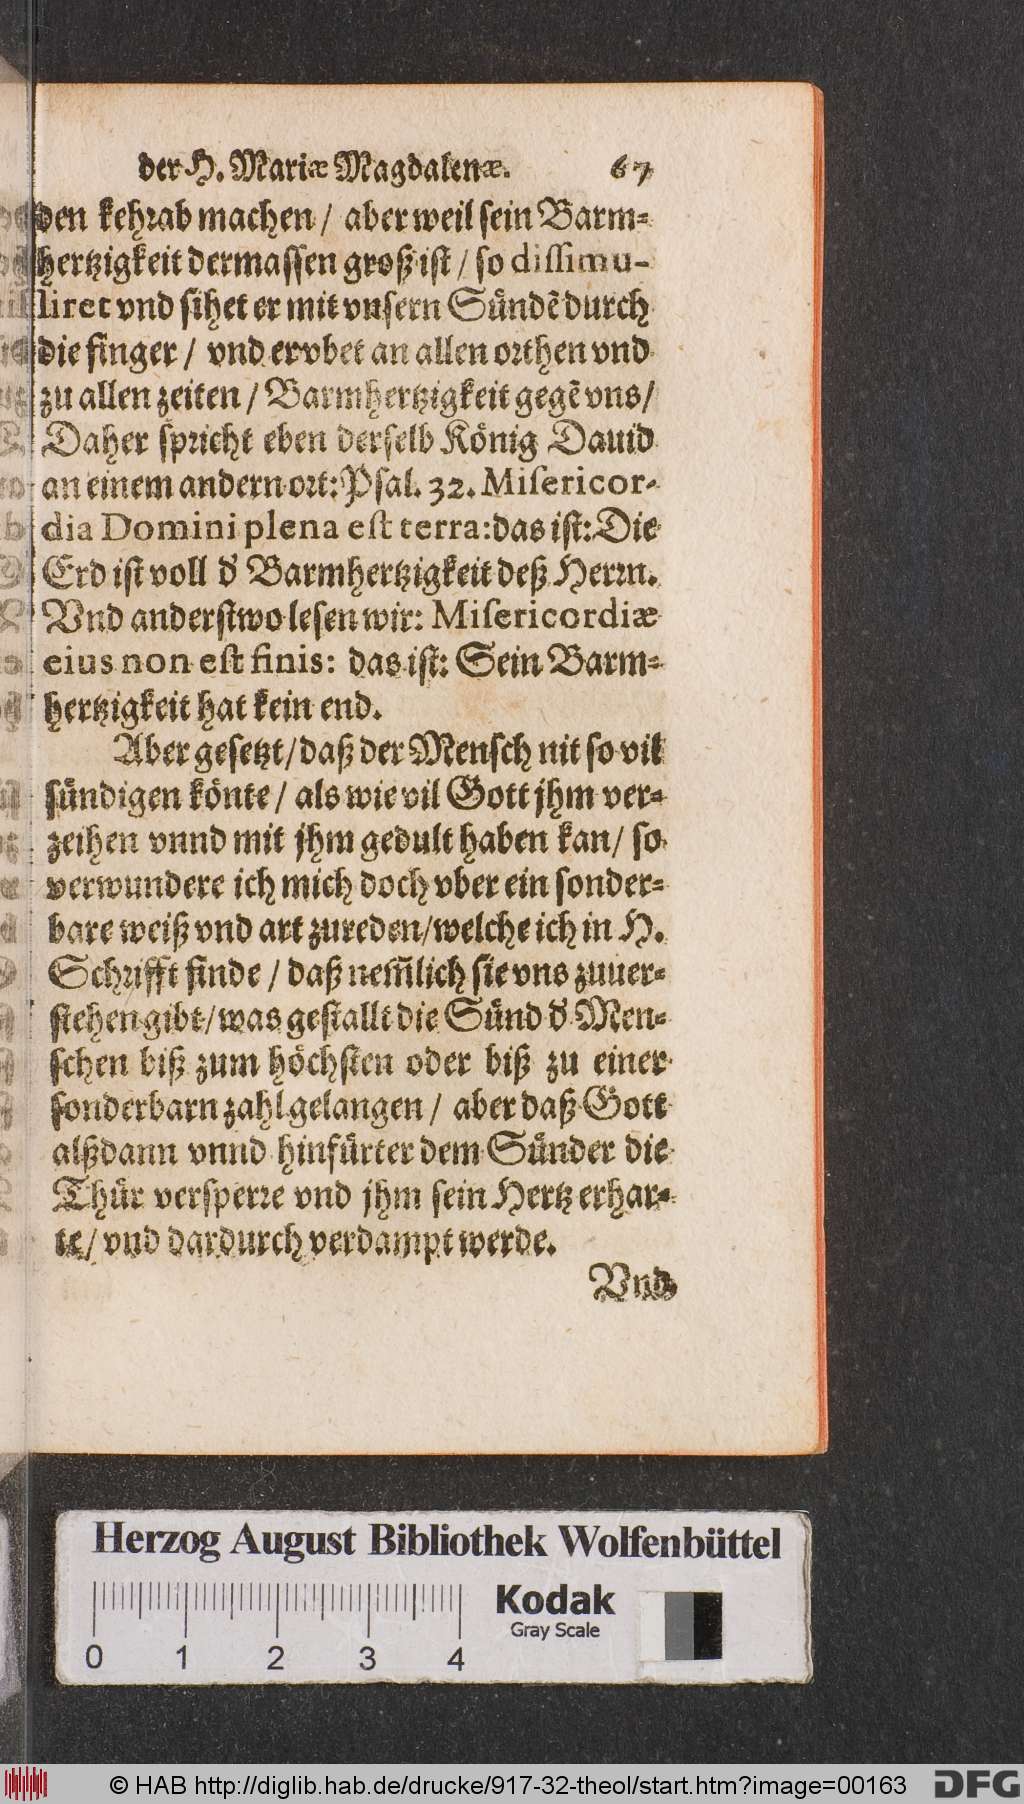 der H. Mariæ Magdalenæ. 67
den kehrab machen / aber weil sein Barm-
hertzigkeit dermassen groß ist / so dissimu-
liret vnd sihet er mit vnsern Sündẽ durch
die finger / vnd er vbet an allen orthen vnd
zu allen zeiten / Barmhertzigkeit gegẽ vns /
Daher spricht eben derselb König Dauid
an einem andern ort: Psal. 32. Misericor-
dia Domini plena est terra: das ist: Die
Erd ist voll d̛ Barmhertzigkeit deß Herrn.
Vnd anderstwo lesen wir: Misericordiæ
eius non est finis: das ist: Sein Barm-
hertzigkeit hat kein end.
Aber gesetzt / daß der Mensch nit so vil
sündigen könte / als wie vil Gott jhm ver-
zeihen vnnd mit jhm gedult haben kan / so
verwundere ich mich doch vber ein sonder-
bare weiß vnd art zureden / welche ich in H.
Schrifft finde / daß nem̃lich sie vns zuuer-
stehen gibt / was gestallt die Sünd d̛ Men-
schen biß zum höchsten oder biß zu einer
sonderbarn zahl gelangen / aber daß Gott
alßdann vnnd hinfürter dem Sünder die
Thür versperre vnd jhm sein Hertz erhar-
te / vnd dardurch verdampt werde.
Vnd
Herzog August Bibliothek Wolfenbüttel
Kodak
Gray Scale
0 1 2 3 4
© HAB http://diglib.hab.de/drucke/917-32-theol/start.htm?image=00163
DFG